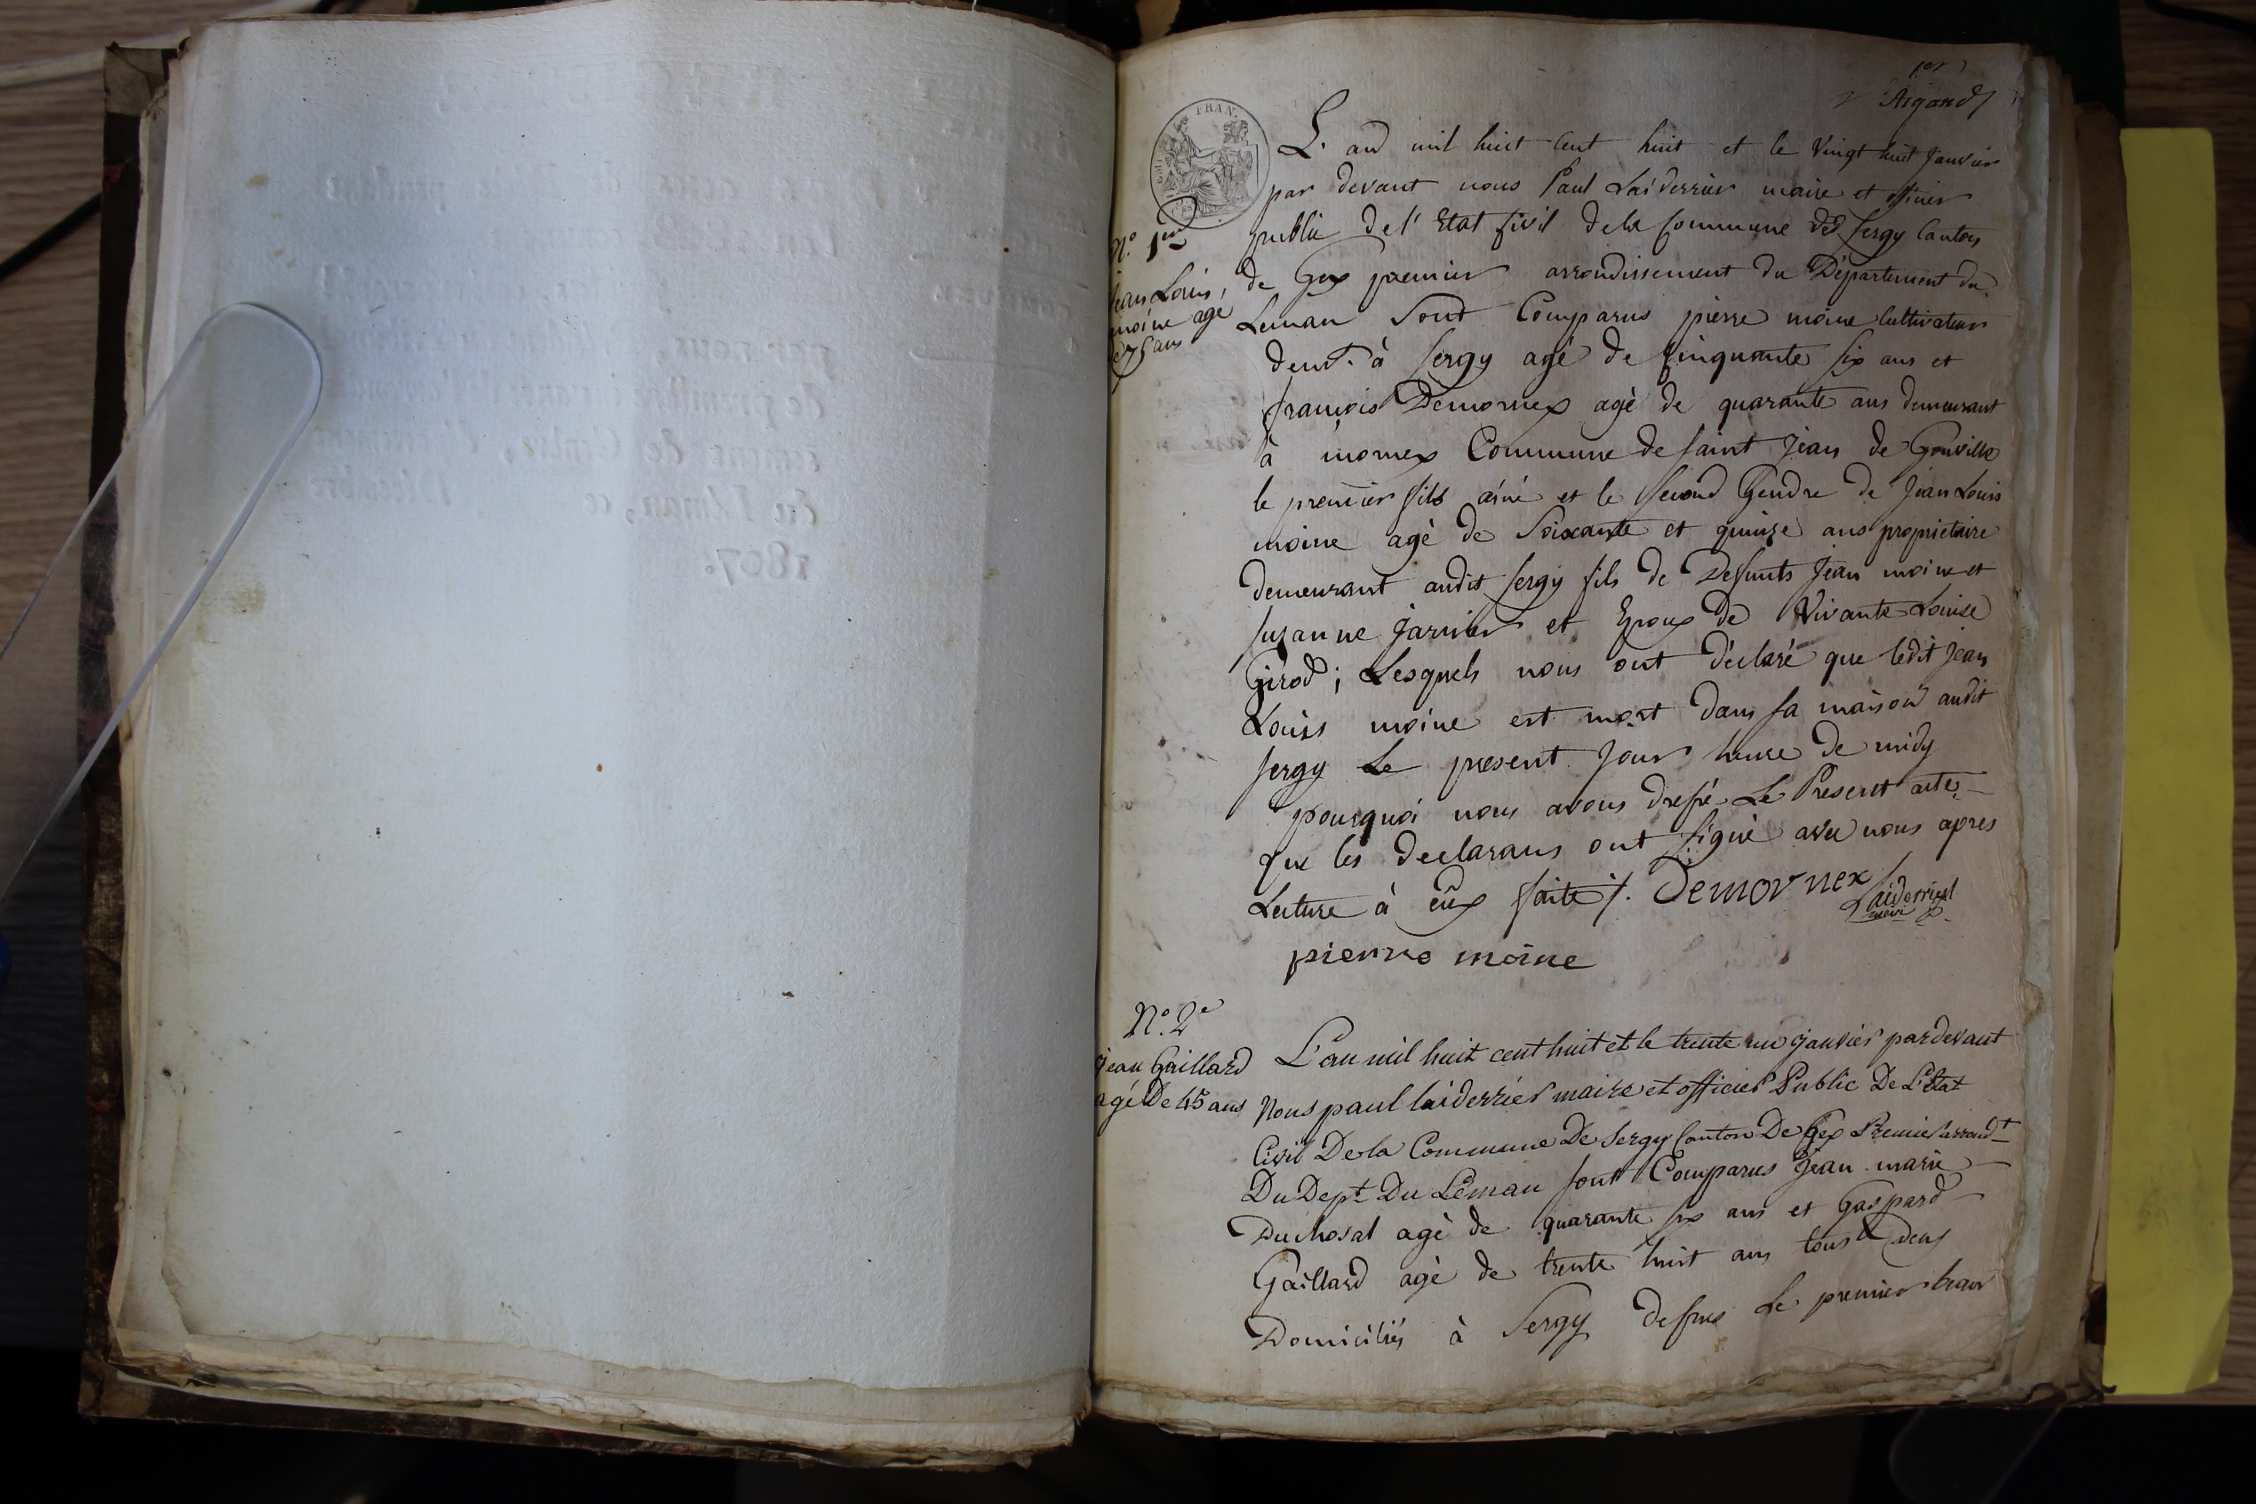 1er
Argand
FRAN.
L'an mil huit Cent huit et le Vingt huit Janvier
par devant nous Paul Laiderrier maire et officier
public de l'Etat Civil de la Commune de Sergy Canton
de Gex premier arrondissement du Département du
Leman Sont Comparus pierre moine Cultivateur
demt. à Sergy agé de Cinquante Six ans et
françois Demornex agé de quarante ans demeurant
à mornex Commune de Saint Jean de Gonville
le premier fils ainé et le Second Gendre de Jean Louis
moine agé de Soixante et quinze ans propriétaire
demeurant audit Sergy fils de Defunts Jean moine et
Suzanne Jarnier et Epoux de Vivante Louise
Girod; Lesquels nous ont déclaré que ledit Jean
Louis moine est mort dans sa maison audit
Sergy Le present Jour heure de midy
pourquoi nous avons dressé Le Present acte
que les declarans ont signé avec nous apres
Lecture à eux faite /. Demornex Laiderrier
maire
pierre moine
N.º 1er
Jean Louis
moine agé
de 75 ans
N.º 2e
Jean Gaillard
agé De 45 ans
L'an mil huit cent huit et le trente un janvier pardevant
Nous paul laiderrier maire et officier Public De L'Etat
Civil De la Commune De Sergy Canton De Gex Premier arrondt
Du Dept Du Léman sont Comparus Jean marie
Duchosal agé de quarante six ans et Gaspard
Gaillard agé de trente huit ans tous deux
Domiciliés à Sergy dessus Le premier beau
1807.